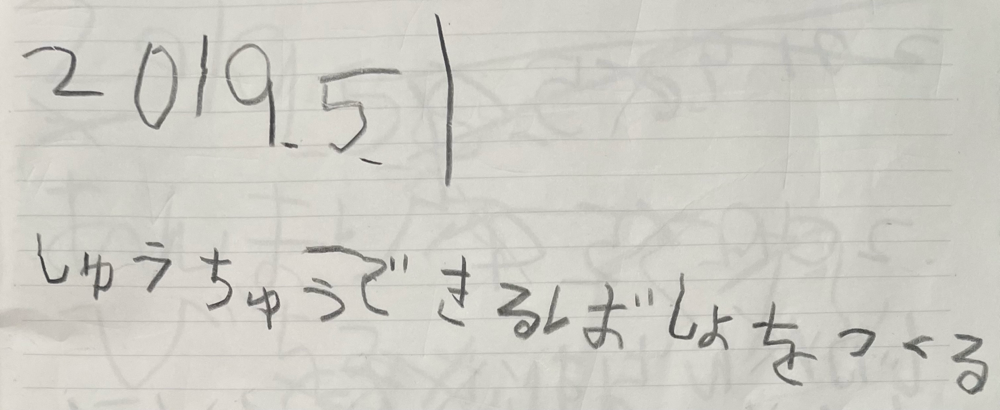 2019.5.1
しゅうちゅうできるばしょをつくる